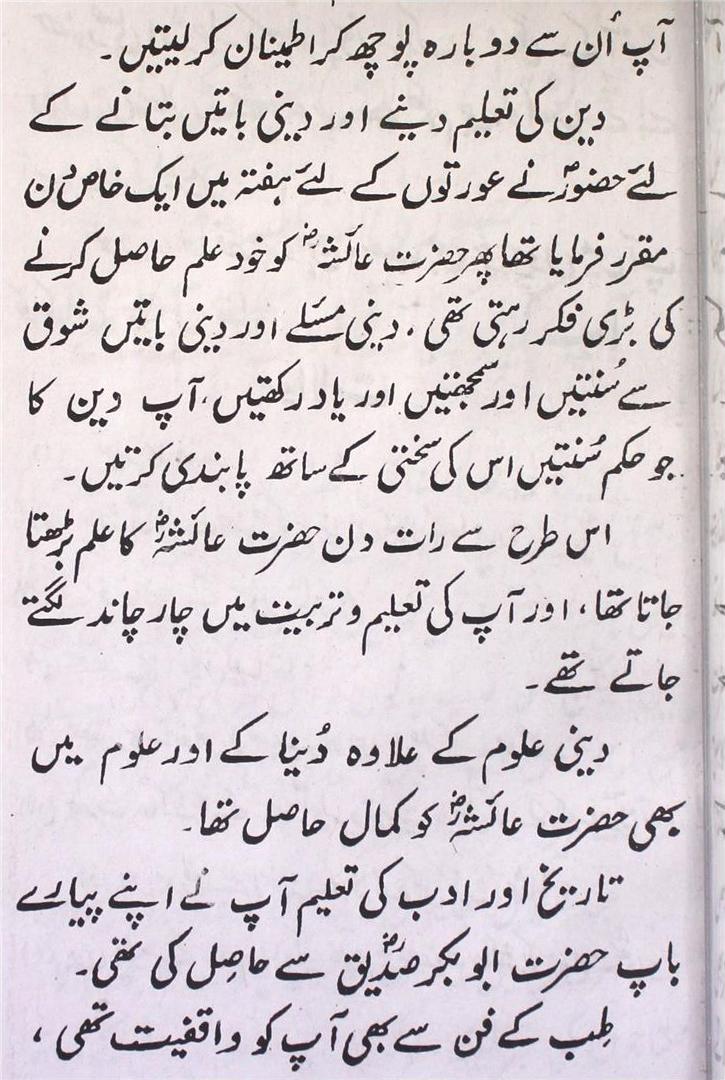 آپ اُن سے دوبارہ پوچھ کر اطمینان کر لیتیں۔
دین کی تعلیم دینے اور دینی باتیں بتانے کے
لئے حضورؐ نے عورتوں کے لئے ہفتہ میں ایک خاص دن
مقرر فرمایا تھا پھر حضرت عائشہؓ کو خود علم حاصل کرنے
کی بڑی فکر رہتی تھی۔ دینی مسئلے اور دینی باتیں شوق
سے سُنتیں اور سمجھتیں اور یاد رکھتیں، آپ دین کا
جو حکم سُنتیں اس کی سختی کے ساتھ پابندی کرتیں۔
اس طرح سے رات دن حضرت عائشہؓ کا علم بڑھتا
جاتا تھا، اور آپ کی تعلیم و تربیت میں چار چاند لگتے
جاتے تھے۔
دینی علوم کے علاوہ دُنیا کے اور علوم میں
بھی حضرت عائشہؓ کو کمال حاصل تھا۔
تاریخ اور ادب کی تعلیم آپ نے اپنے پیارے
باپ حضرت ابوبکر صدیقؓ سے حاصِل کی تھی۔
طِب کے فن سے بھی آپ کو واقفیت تھی،